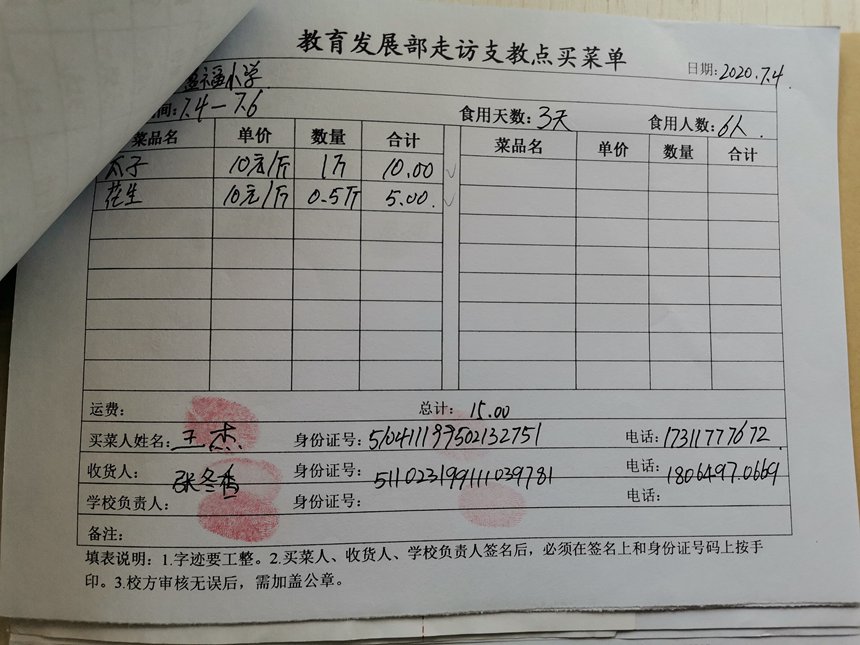 教育发展部走访支教点买菜单
日期:2020.7.4
福小学
间:7.4—7.6 食用天数:3天 食用人数:6人
菜品名 单价 数量 合计 菜品名 单价 数量 合计
太子 10元1斤 1斤 10.00
花生 10元1斤 0.5斤 5.00.
运费: 总计: 15.00
买菜人姓名:王杰. 身份证号:510411199502132751 电话:17311777672
收货人:张冬梅 身份证号:511023199111039781 电话:1806497.0669
学校负责人: 身份证号: 电话:
备注:
填表说明:1.字迹要工整。2.买菜人、收货人、学校负责人签名后,必须在签名上和身份证号码上按手
印。3.校方审核无误后,需加盖公章。